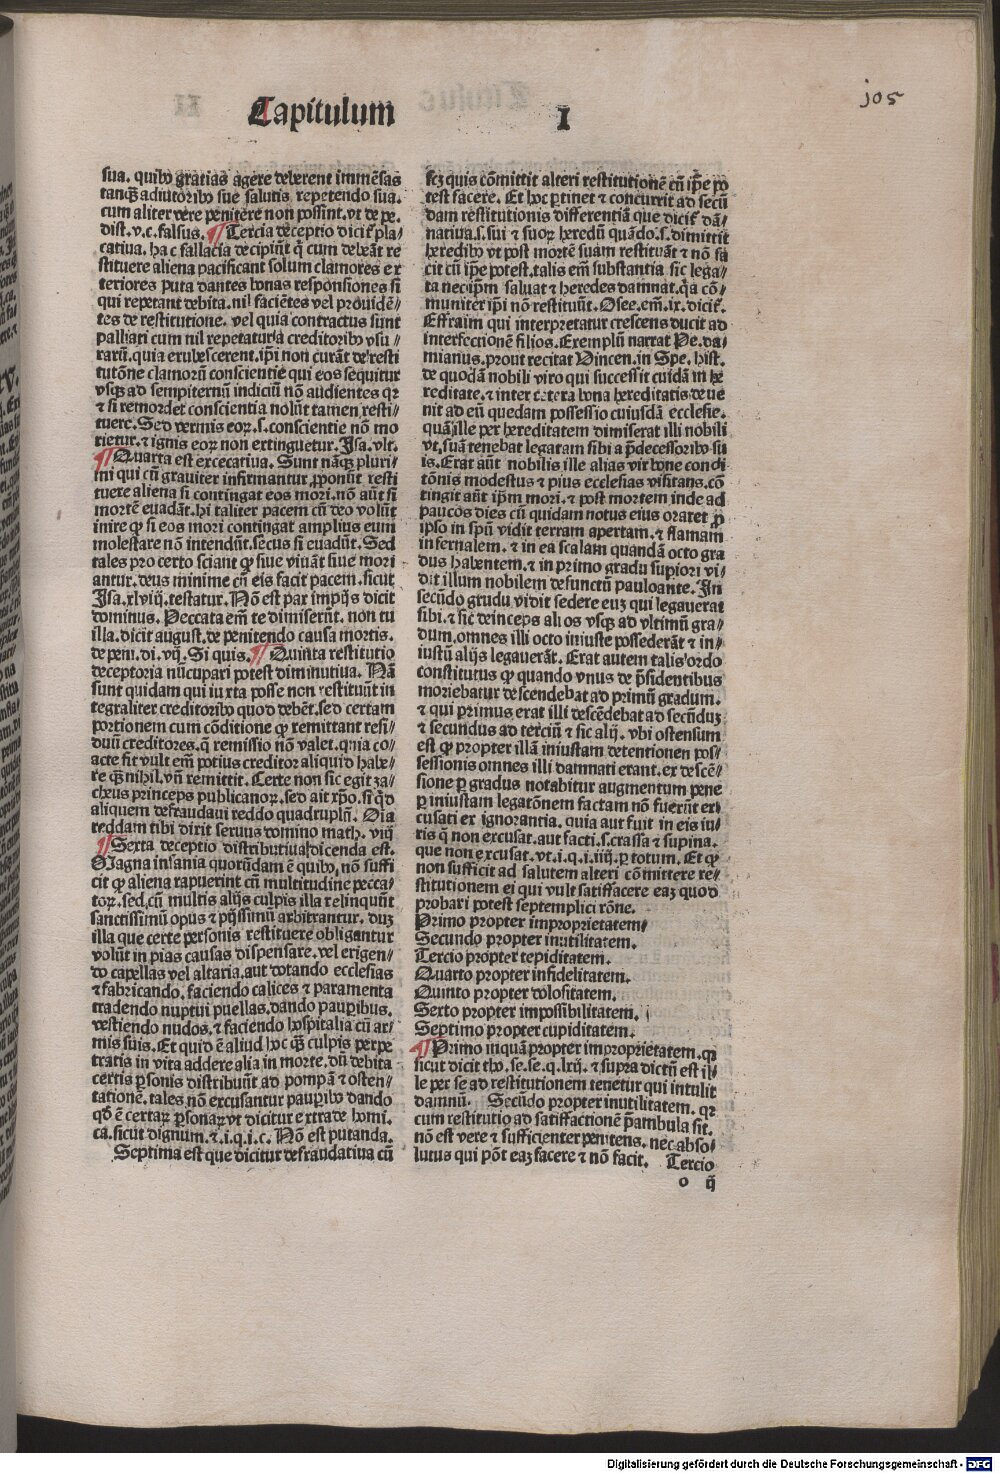 Capitulum
I
jo5
sua. quibꝰ gratias agere deberent immēsas
tanqꝫ adiutoribꝰ sue salutis repetendo sua.
cum aliter vere penitere non possint. vt de pe.
dist. v. c. falsus. ¶ Tercia deceptio dicit͛ pla⸗
cativa. hac fallacia decipiūt q̇ cum debeāt re
stituere aliena pacificant solum clamores ex
teriores puta dantes bonas responsiones si
qui repetant debita. nil faciētes vel prouidē⸗
tes de restitutione. vel quia contractus sunt
palliati cum nil repetatur a creditoribꝰ vsu⸗
rarū. quia erubescerent. ip̄i non curāt de resti
tutōne clamorū conscientie qui eos sequitur
vsqꝫ ad sempiternū indiciū nō audientes qr
⁊ si remordet conscientia nolūt tamen resti⸗
tuere. Sed vermis eoꝝ .s. conscientie nō mo
rietur. ⁊ ignis eoꝝ non extinguetur. Isa. vlt.
¶ Quarta est excecativa. Sunt nāqꝫ pluri⸗
mi qui cū graviter infirmantur ꝓponūt resti
tuere aliena si contingat eos mori. nō aūt si
mortē euadāt. hi taliter pacem cū deo volūt
inire ꝙ si eos mori contingat amplius eum
molestare nō intendūt. secus si euadūt. Sed
tales pro certo sciant ꝙ siue viuāt siue mori
antur. deus minime cū eis facit pacem. sicut
Isa. xlviij. testatur. Nō est pax impijs dicit
dominus. Peccata em̄ te dimiserūt. non tu
illa. dicit august. de penitendo causa mortis.
de peni. di. vij. Si quis. ¶ Quinta restitutio
deceptoria nūcupari potest diminutiua. Nā
sunt quidam qui iuxta posse non restituūt in
tegraliter creditoribꝰ quod debēt. sed certam
portionem cum cōditione ꝙ remittant resi⸗
duū creditores. q̄ remissio nō valet. quia co⸗
acte fit vult em̄ potius creditor aliquid habe⸗
re qꝫ nihil. vn̄ remittit. Certe non sic egit za⸗
cheus princeps publicanoꝝ. sed ait xp̄o. si q̇d
aliquem defraudaui reddo quadruplū. Oīa
reddam tibi dixit seruus domino math. viij
¶ Sexta deceptio distributiua dicenda est.
Magna insania quorūdam ē quibꝰ, nō suffi
cit ꝙ aliena rapuerint cū multitudine pecca⸗
toꝝ. sed cū multis alijs culpis illa relinquūt
sanctissimū opus ⁊ pijssimū arbitrantur. duꝫ
illa que certe personis restituere obligantur
volūt in pias causas dispensare. vel erigen⸗
do capellas vel altaria. aut dotando ecclesias
⁊ fabricando. faciendo calices ⁊ paramenta
tradendo nuptui puellas. dando pauꝑibus.
vestiendo nudos. ⁊ faciendo hospitalia cū ar⸗
mis suis. Et quid ē aliud hoc qꝫ culpis perpe
tratis in vita addere alia in morte. dū debita
certis ꝑsonis distribuūt ad pompā ⁊ osten⸗
tationē. tales nō excusantur pauꝑibꝰ dando
qd̄ ē certaꝝ ꝑsonaꝝ vt dicitur extrade homi.
ca. sicut dignum. ⁊ .i. q. i. c. Nō est putanda.
Septima est que dicitur defraudatiua cū
scꝫ quis cōmittit alteri restitutionē cū ip̄e po
test facere. Et hoc ꝑtinet ⁊ concurrit ad secū
dam restitutionis differentiā que dicit͛ dā⸗
natiua .s. sui ⁊ suoꝝ heredū quādo .s. dimittit
heredibꝰ vt post mortē suam restituāt ⁊ nō fa
cit cū ip̄e potest. talis em̄ substantia sic lega⸗
ta nec ip̄m saluat ⁊ heredes damnat. q̇a cō⸗
muniter ip̄i nō restituūt. Osee. em̄. ix. dicit͛.
Effraim qui interpretatur crescens ducit ad
interfectionē filios. Exemplū narrat Pe. da⸗
mianus. prout recitat Vincen. in Spe. hist.
de quodā nobili viro qui successit cuidā in he
reditate. ⁊ inter cetera bona hereditatis deue
nit ad eū quedam possessio cuiusdā ecclesie.
quā ille per hereditatem dimiserat illi nobili
vt. suā tenebat legatam sibi a p̄decessoribꝰ su
is. Erat aūt nobilis ille alias vir bone condi
tōnis modestus ⁊ pius ecclesias visitans. cō
tingit aūt ip̄m mori. ⁊ post mortem inde ad
paucos dies cū quidam notus eius oraret ꝓ
ipso in spū vidit terram apertam. ⁊ flamam
infernalem. ⁊ in ea scalam quandā octo gra
dus habentem. ⁊ in primo gradu supiori vi⸗
dit illum nobilem defunctū pauloante. In
secūdo grudu vidit sedere euꝫ qui legauerat
sibi. ⁊ sic deinceps alios vsqꝫ ad vltimū gra⸗
dum. omnes illi octo iniuste possederāt ⁊ in⸗
iustū alijs legauerāt. Erat autem talis ordo
constitutus ꝙ quando vnus de p̄sidentibus
moriebatur descendebat ad primū gradum.
⁊ qui primus erat illi descēdebat ad secūduꝫ
⁊ secundus ad terciū ⁊ sic alij. vbi ostensum
est ꝙ propter illā iniustam detentionen pos⸗
sessionis omnes illi damnati erant. ex descē⸗
sione ꝑ gradus notabitur augmentum pene
ꝑ iniustam legatōnem factam nō fuerūt ex⸗
cusati ex ignorantia. quia aut fuit in eis iu⸗
ris q̄ non excusat. aut facti .s. crassa ⁊ supina.
que non excusat. vt .i. q. i. iiij. ꝑ totum. Et ꝙ
non sufficit ad salutem alteri cōmittere re⸗
stitutionem ei qui vult satisfacere eaꝫ quod
probari potest septemplici rōne.
Primo propter improprietatem
Secundo propter inutilitatem.
Tercio propter tepiditatem.
Quarto propter infidelitatem.
Quinto propter dolositatem.
Sexto propter impossibilitatem.
Septimo propter cupiditatem.
¶ Primo inquā propter improprietatem. qꝛ
sicut dicit tho. se. se. q. lxij. ⁊ supra dictū est il⸗
le per se ad restitutionem tenetur qui intulit
damnū. Secūdo propter inutilitatem. qꝛ
cum restitutio ad satisfactionē p̄ambula sit.
nō est vere ⁊ sufficienter penitens. nec abso⸗
lutus qui pōt eaꝫ facere ⁊ nō facit. Tercio
o ij
Digitalisierung gefördert durch die Deutsche Forschungsgemeinschaft - DFG